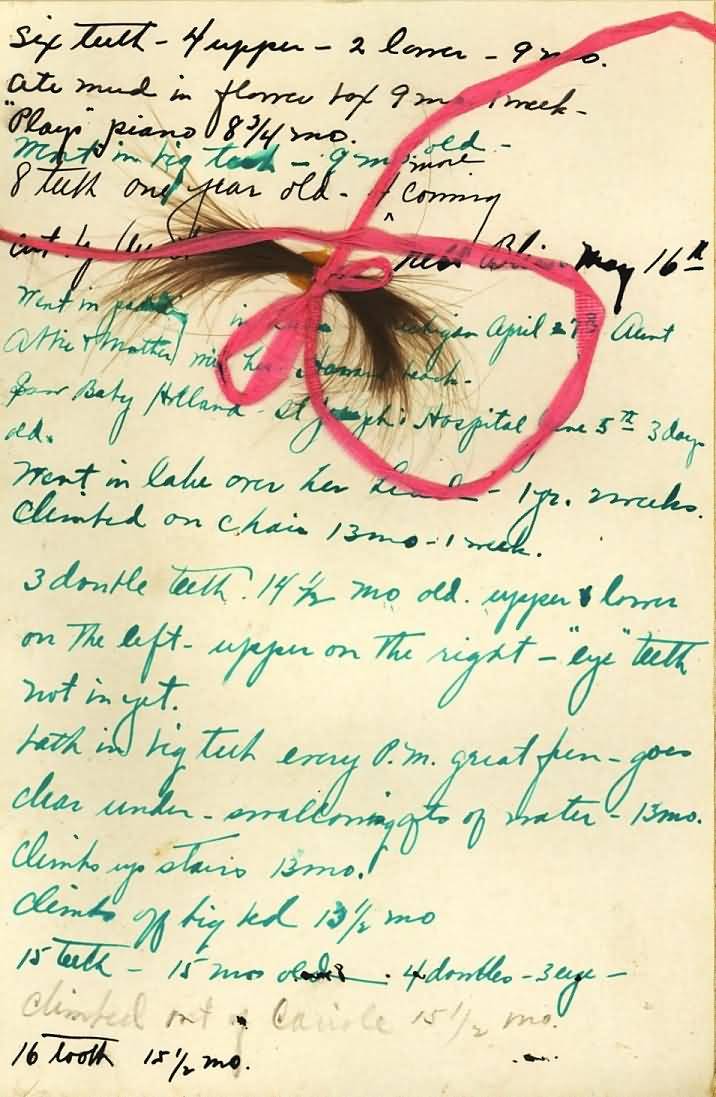 Six teeth - 4 upper - 2 lower - 9 mo.
ate mud in flower box 9 mo 1 week -
"Plays" piano 8 3/4 mo.
Went in big tub - 9 mo old -
8 teeth one year old - 4 more coming
cut by May 16th
Went in in Michigan April 27 Aunt
Attie & Mother with her. Howard beach -
Saw Baby Holland - St Joseph's Hospital June 5th 3 days
old.
Went in lake over her head - 1 yr. 2 weeks.
Climbed on chair 13 mo - 1 week.
3 double teeth. 14 1/2 mo old. upper & lower
on the left - upper on the right - "eye" teeth
not in yet.
bath in big tub every P.M. great fun - goes
clear under - swallowing qts of water - 13 mo.
Climbs up stairs 13 mo.
Climbs off big bed 13 1/2 mo
15 teeth - 15 mos old. 4 doubles - 3 eye -
climbed out of Cariole 15 1/2 mo.
16 tooth 15 1/2 mo.